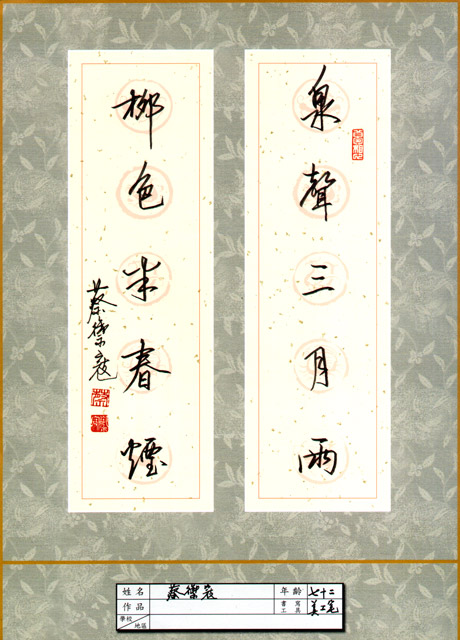 泉聲三月雨
柳色半春煙
蔡傑寇
姓名
年齡 七十二
作品
書寫工具 美工筆
學校/地區